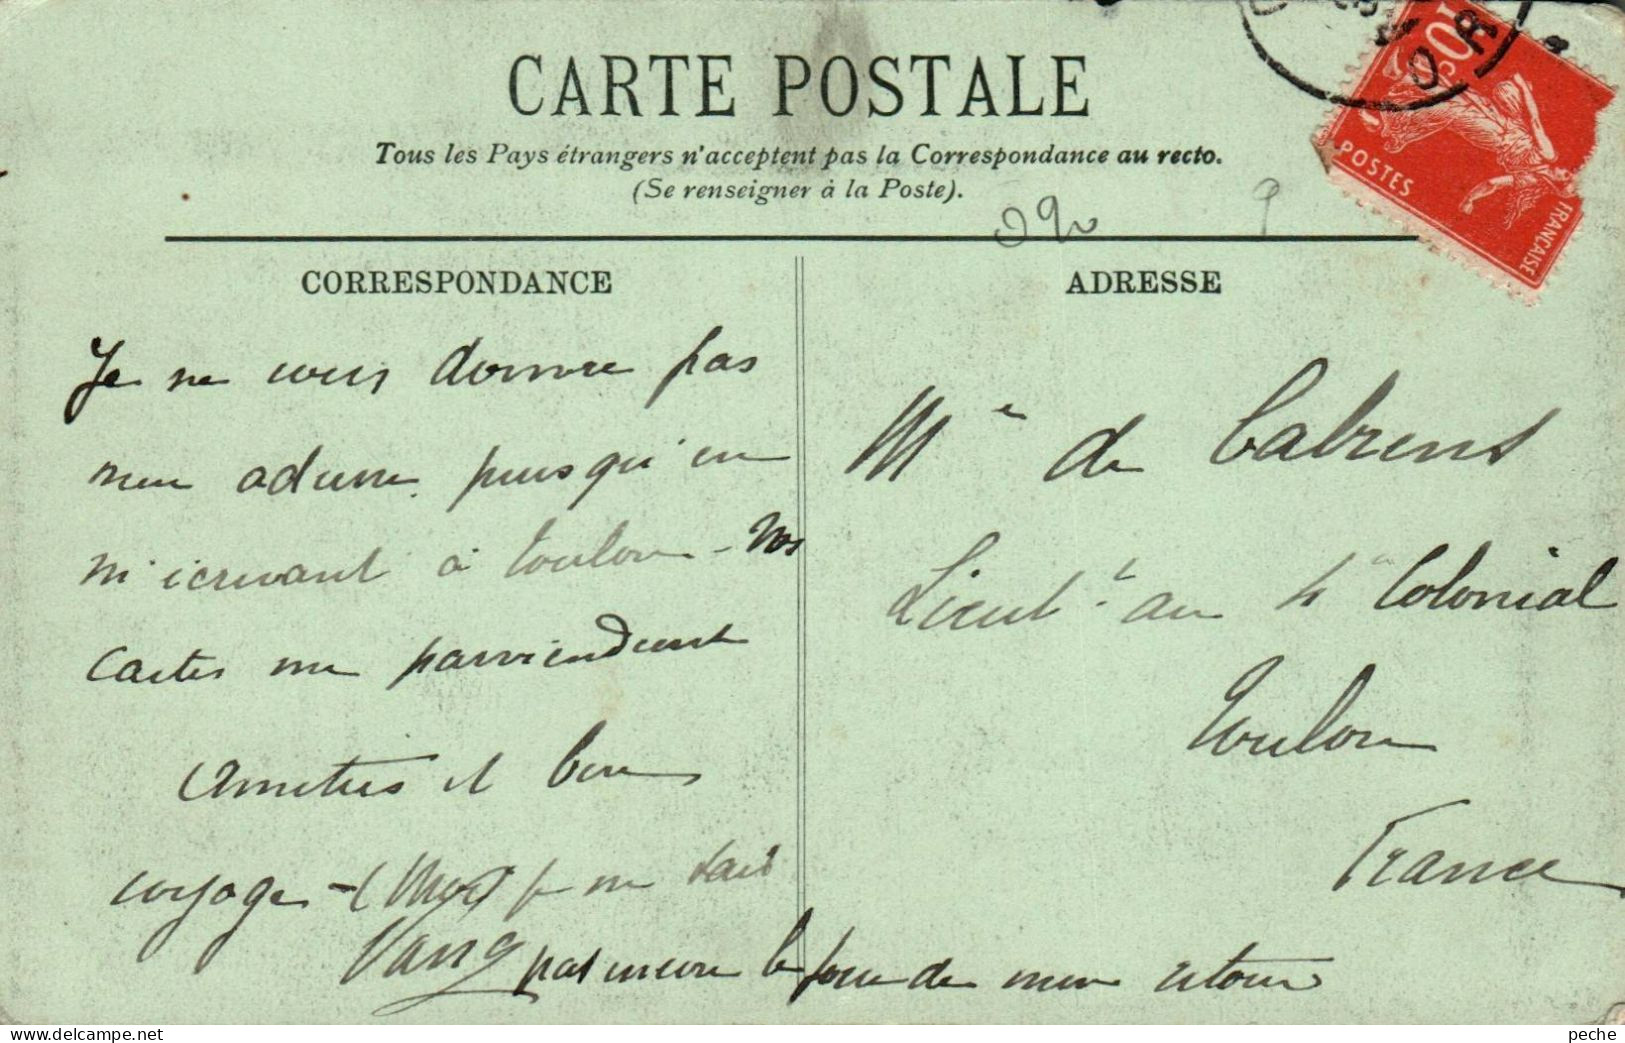 CARTE POSTALE
Tous les Pays étrangers n'acceptent pas la Correspondance au recto.
(Se renseigner à la Poste).
10c
POSTES
FRANÇAISE
CORRESPONDANCE
Je ne vous donne pas
mon adresse puisqu'en
m'écrivant à Toulon - Vos
cartes me parviendront
Amitiés et bon
voyage - (Moi) je ne sais
pas encore le jour de mon retour
ADRESSE
Mr de Cabrens
Lieut. au 4e Colonial
Toulon
France
peche